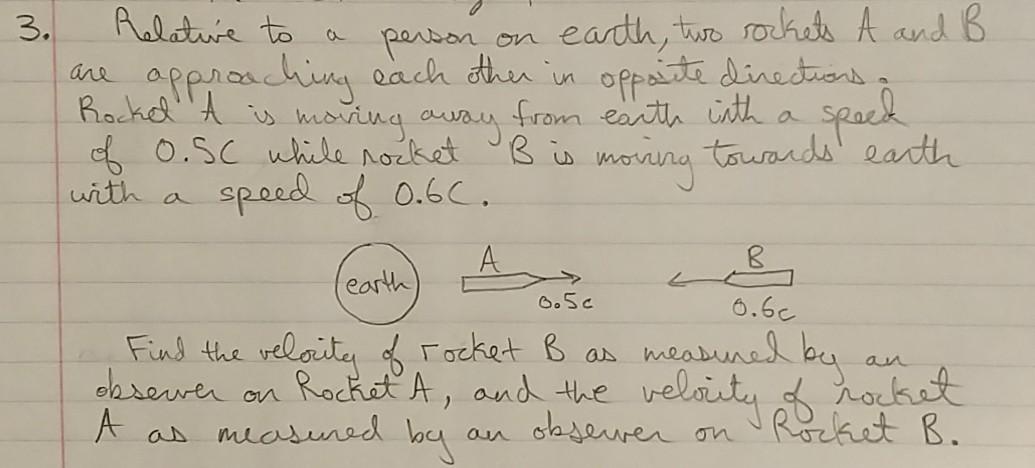 3. Relative to a person on earth, two rockets A and B
are approaching each other in opposite directions.
Rocket A is moving away from earth with a speed
of 0.5C while rocket B is moving towards earth
with a speed of 0.6C.
A B
earth
0.5c 0.6c
Find the velocity of rocket B as measured by an
observer on Rocket A, and the velocity of rocket
A as measured by an observer on Rocket B.